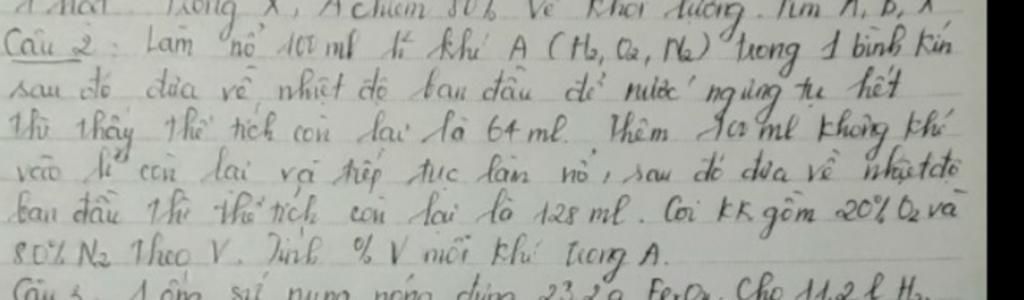 Trong X, A chiếm 80% về khối lượng. Tìm A, B, X
Câu 2: Làm nổ 100 ml hh khí A (H₂, O₂, N₂) trong 1 bình kín
sau đó đưa về nhiệt độ ban đầu để nước ngưng tụ hết
thì thấy thể tích còn lại là 64 ml. Thêm 100 ml không khí
vào hh còn lại và tiếp tục làm nổ, sau đó đưa về nhiệt độ
ban đầu thì thể tích còn lại là 128 ml. Coi KK gồm 20% O₂ và
80% N₂ theo V. Tính % V mỗi khí trong A.
Câu 3. 1 ống sứ nung nóng đựng 23,2g Cho 11,2 l H₂